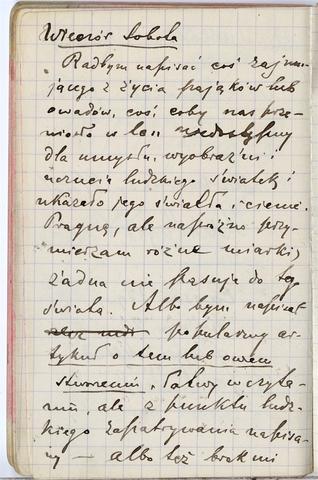 Wieczór Sobota
Radbym napisać coś zajmu-
jącego z życia pająków lub
owadów, coś coby nas prze-
niosło w ten niedostępny
dla umysłu, wyobraźni i
uczucia ludzkiego światek i
ukazało jego światła i cienie.
Pragnę, ale napróżno przy-
mierzam różne miarki,
żadna nie pasuje do tego
świata. Albo bym napisał
popularny ar-
tykuł o tem lub owem
stworzeniu, łatwy w czyta-
niu, ale z punktu ludz-
kiego zapatrywania napisa-
ny — albo też brak mi